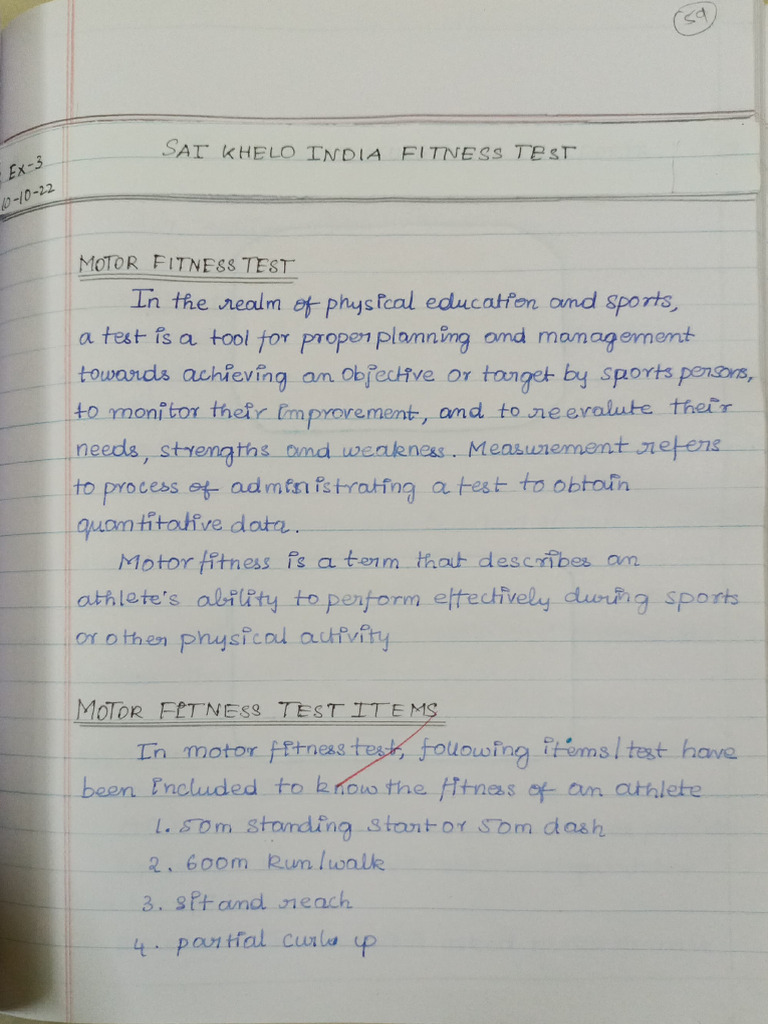 59
Ex-3
10-10-22
SAI KHELO INDIA FITNESS TEST
MOTOR FITNESS TEST
In the realm of physical education and sports,
a test is a tool for proper planning and management
towards achieving an objective or target by sports persons,
to monitor their improvement, and to reevalute their
needs, strengths and weakness. Measurement refers
to process of administrating a test to obtain
quantitative data.
Motor fitness is a term that describes an
athlete's ability to perform effectively during sports
or other physical activity
MOTOR FITNESS TEST ITEMS
In motor fitness test, following items/test have
been included to know the fitness of an athlete
1. 50m standing start or 50m dash
2. 600m Run/walk
3. sit and reach
4. partial curl up